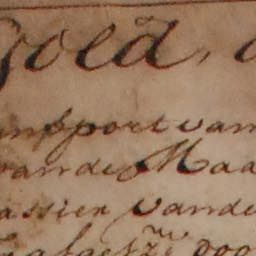 Goed, d
ansport van
vande Maa
assier vande